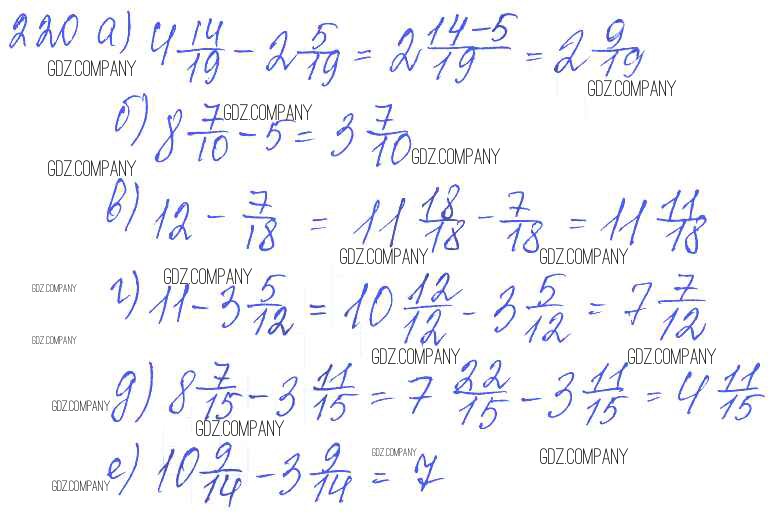 220 а) 4 14/19 - 2 5/19 = 2 14-5/19 = 2 9/19
GDZ.COMPANY GDZ.COMPANY
б) 8 7/10 - 5 = 3 7/10
GDZ.COMPANY GDZ.COMPANY GDZ.COMPANY
в) 12 - 7/18 = 11 18/18 - 7/18 = 11 11/18
GDZ.COMPANY GDZ.COMPANY
GDZ.COMPANY GDZ.COMPANY
г) 11 - 3 5/12 = 10 12/12 - 3 5/12 = 7 7/12
GDZ.COMPANY GDZ.COMPANY GDZ.COMPANY
д) 8 7/15 - 3 11/15 = 7 22/15 - 3 11/15 = 4 11/15
GDZ.COMPANY GDZ.COMPANY
е) 10 9/14 - 3 9/14 = 7
GDZ.COMPANY GDZ.COMPANY GDZ.COMPANY